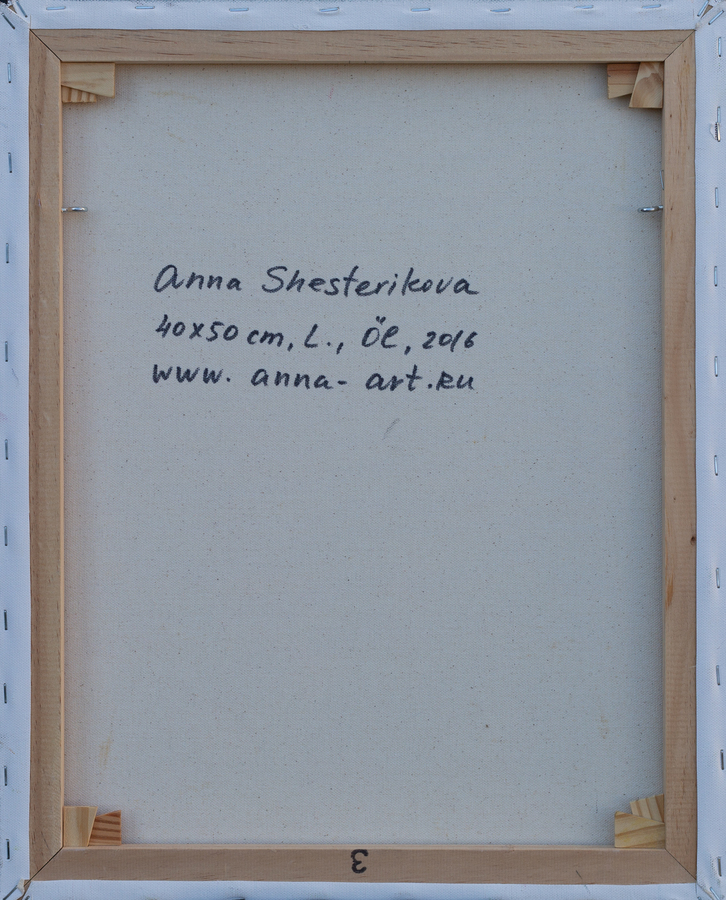 Anna Shesterikova
40x50 cm, L., Öl, 2016
www. anna- art.ru
3